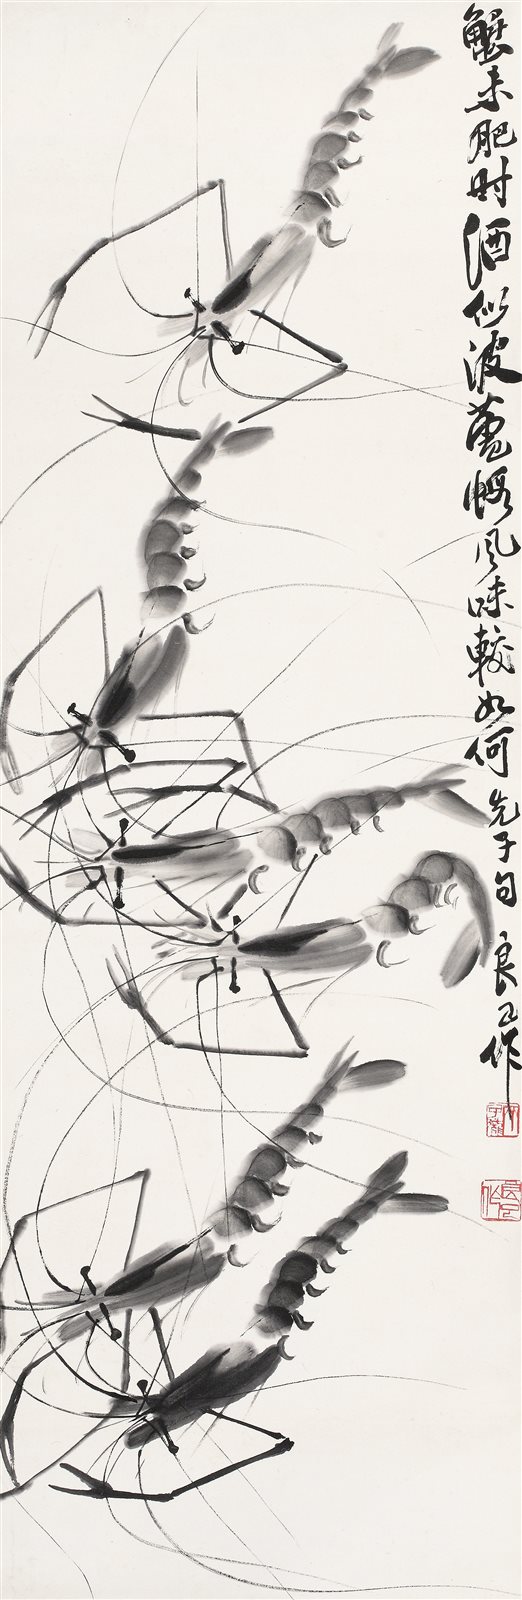 蟹未肥时酒似波蘆蝦风味較如何 先子句 良已作